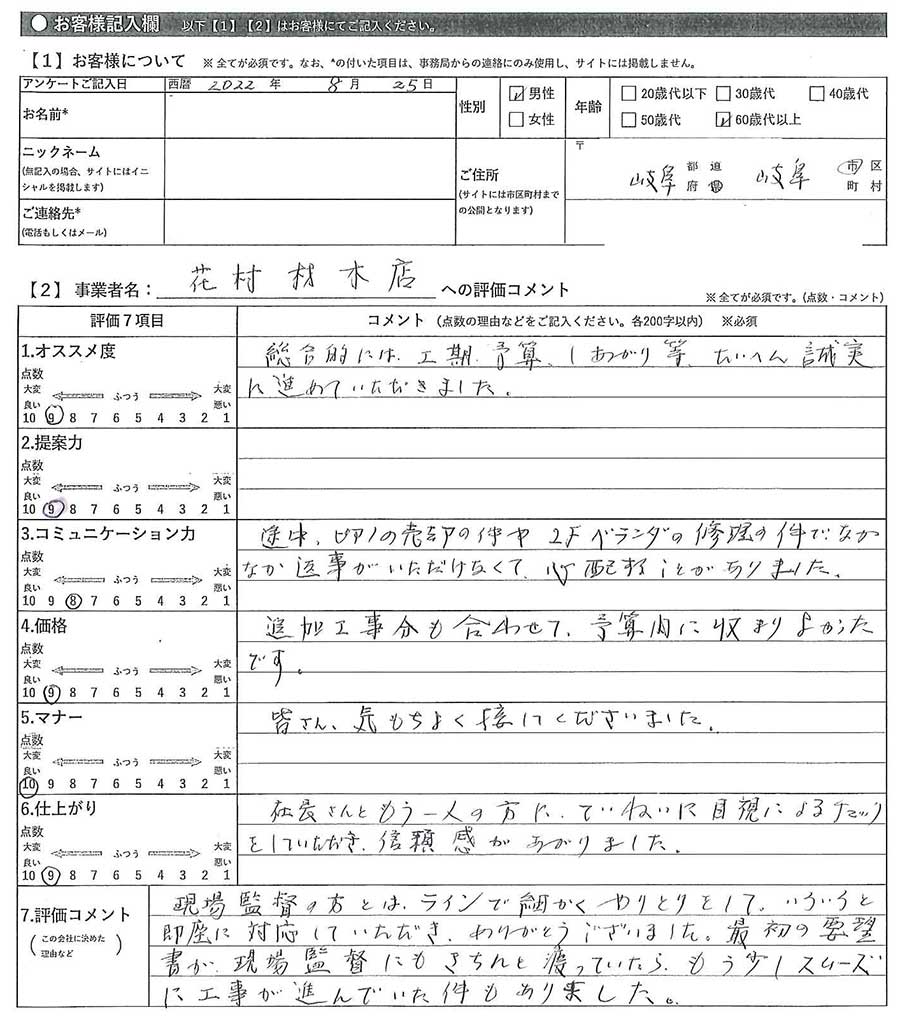 ● お客様記入欄 以下【1】【2】はお客様にてご記入ください。
【1】お客様について ※ 全てが必須です。なお、*の付いた項目は、事務局からの連絡にのみ使用し、サイトには掲載しません。
アンケートご記入日 西暦 2022 年 8 月 25 日
お名前*
性別 ☑ 男性 □ 女性
年齢 □ 20歳代以下 □ 30歳代 □ 40歳代
□ 50歳代 ☑ 60歳代以上
ニックネーム
(無記入の場合、サイトにはイニ
シャルを掲載します)
ご連絡先*
(電話もしくはメール)
ご住所
(サイトには市区町村まで
の公開となります)
〒
岐阜 都 道 府 県 岐阜 市 区 町 村
【2】事業者名: 花村材木店 への評価コメント
※ 全てが必須です。(点数・コメント)
評価7項目 コメント (点数の理由などをご記入ください。各200字以内) ※必須
1.オススメ度
点数
大変良い ふつう 大変悪い
10 9 8 7 6 5 4 3 2 1
総合的には、工期、予算、しあがり等、たいへん誠実
に進めていただきました。
2.提案力
点数
大変良い ふつう 大変悪い
10 9 8 7 6 5 4 3 2 1
3.コミュニケーション力
点数
大変良い ふつう 大変悪い
10 9 8 7 6 5 4 3 2 1
途中、ピアノの売却の件や 2Fベランダの修理の件で、なか
なか返事がいただけなくて、心配することがありました。
4.価格
点数
大変良い ふつう 大変悪い
10 9 8 7 6 5 4 3 2 1
追加工事分も合わせて、予算内に収まりよかった
です。
5.マナー
点数
大変良い ふつう 大変悪い
10 9 8 7 6 5 4 3 2 1
皆さん、気もちよく接してくださいました。
6.仕上がり
点数
大変良い ふつう 大変悪い
10 9 8 7 6 5 4 3 2 1
社長さんともう一人の方に、ていねいに目視によるチェック
をしていただき、信頼感があがりました。
7.評価コメント
(この会社に決めた
理由など)
現場監督の方とは、ラインで細かくやりとりをして、いろいろと
即座に対応していただき、ありがとうございました。最初の要望
書が、現場監督にもきちんと渡っていたら、もう少しスムーズ
に工事が進んでいた件もありました。